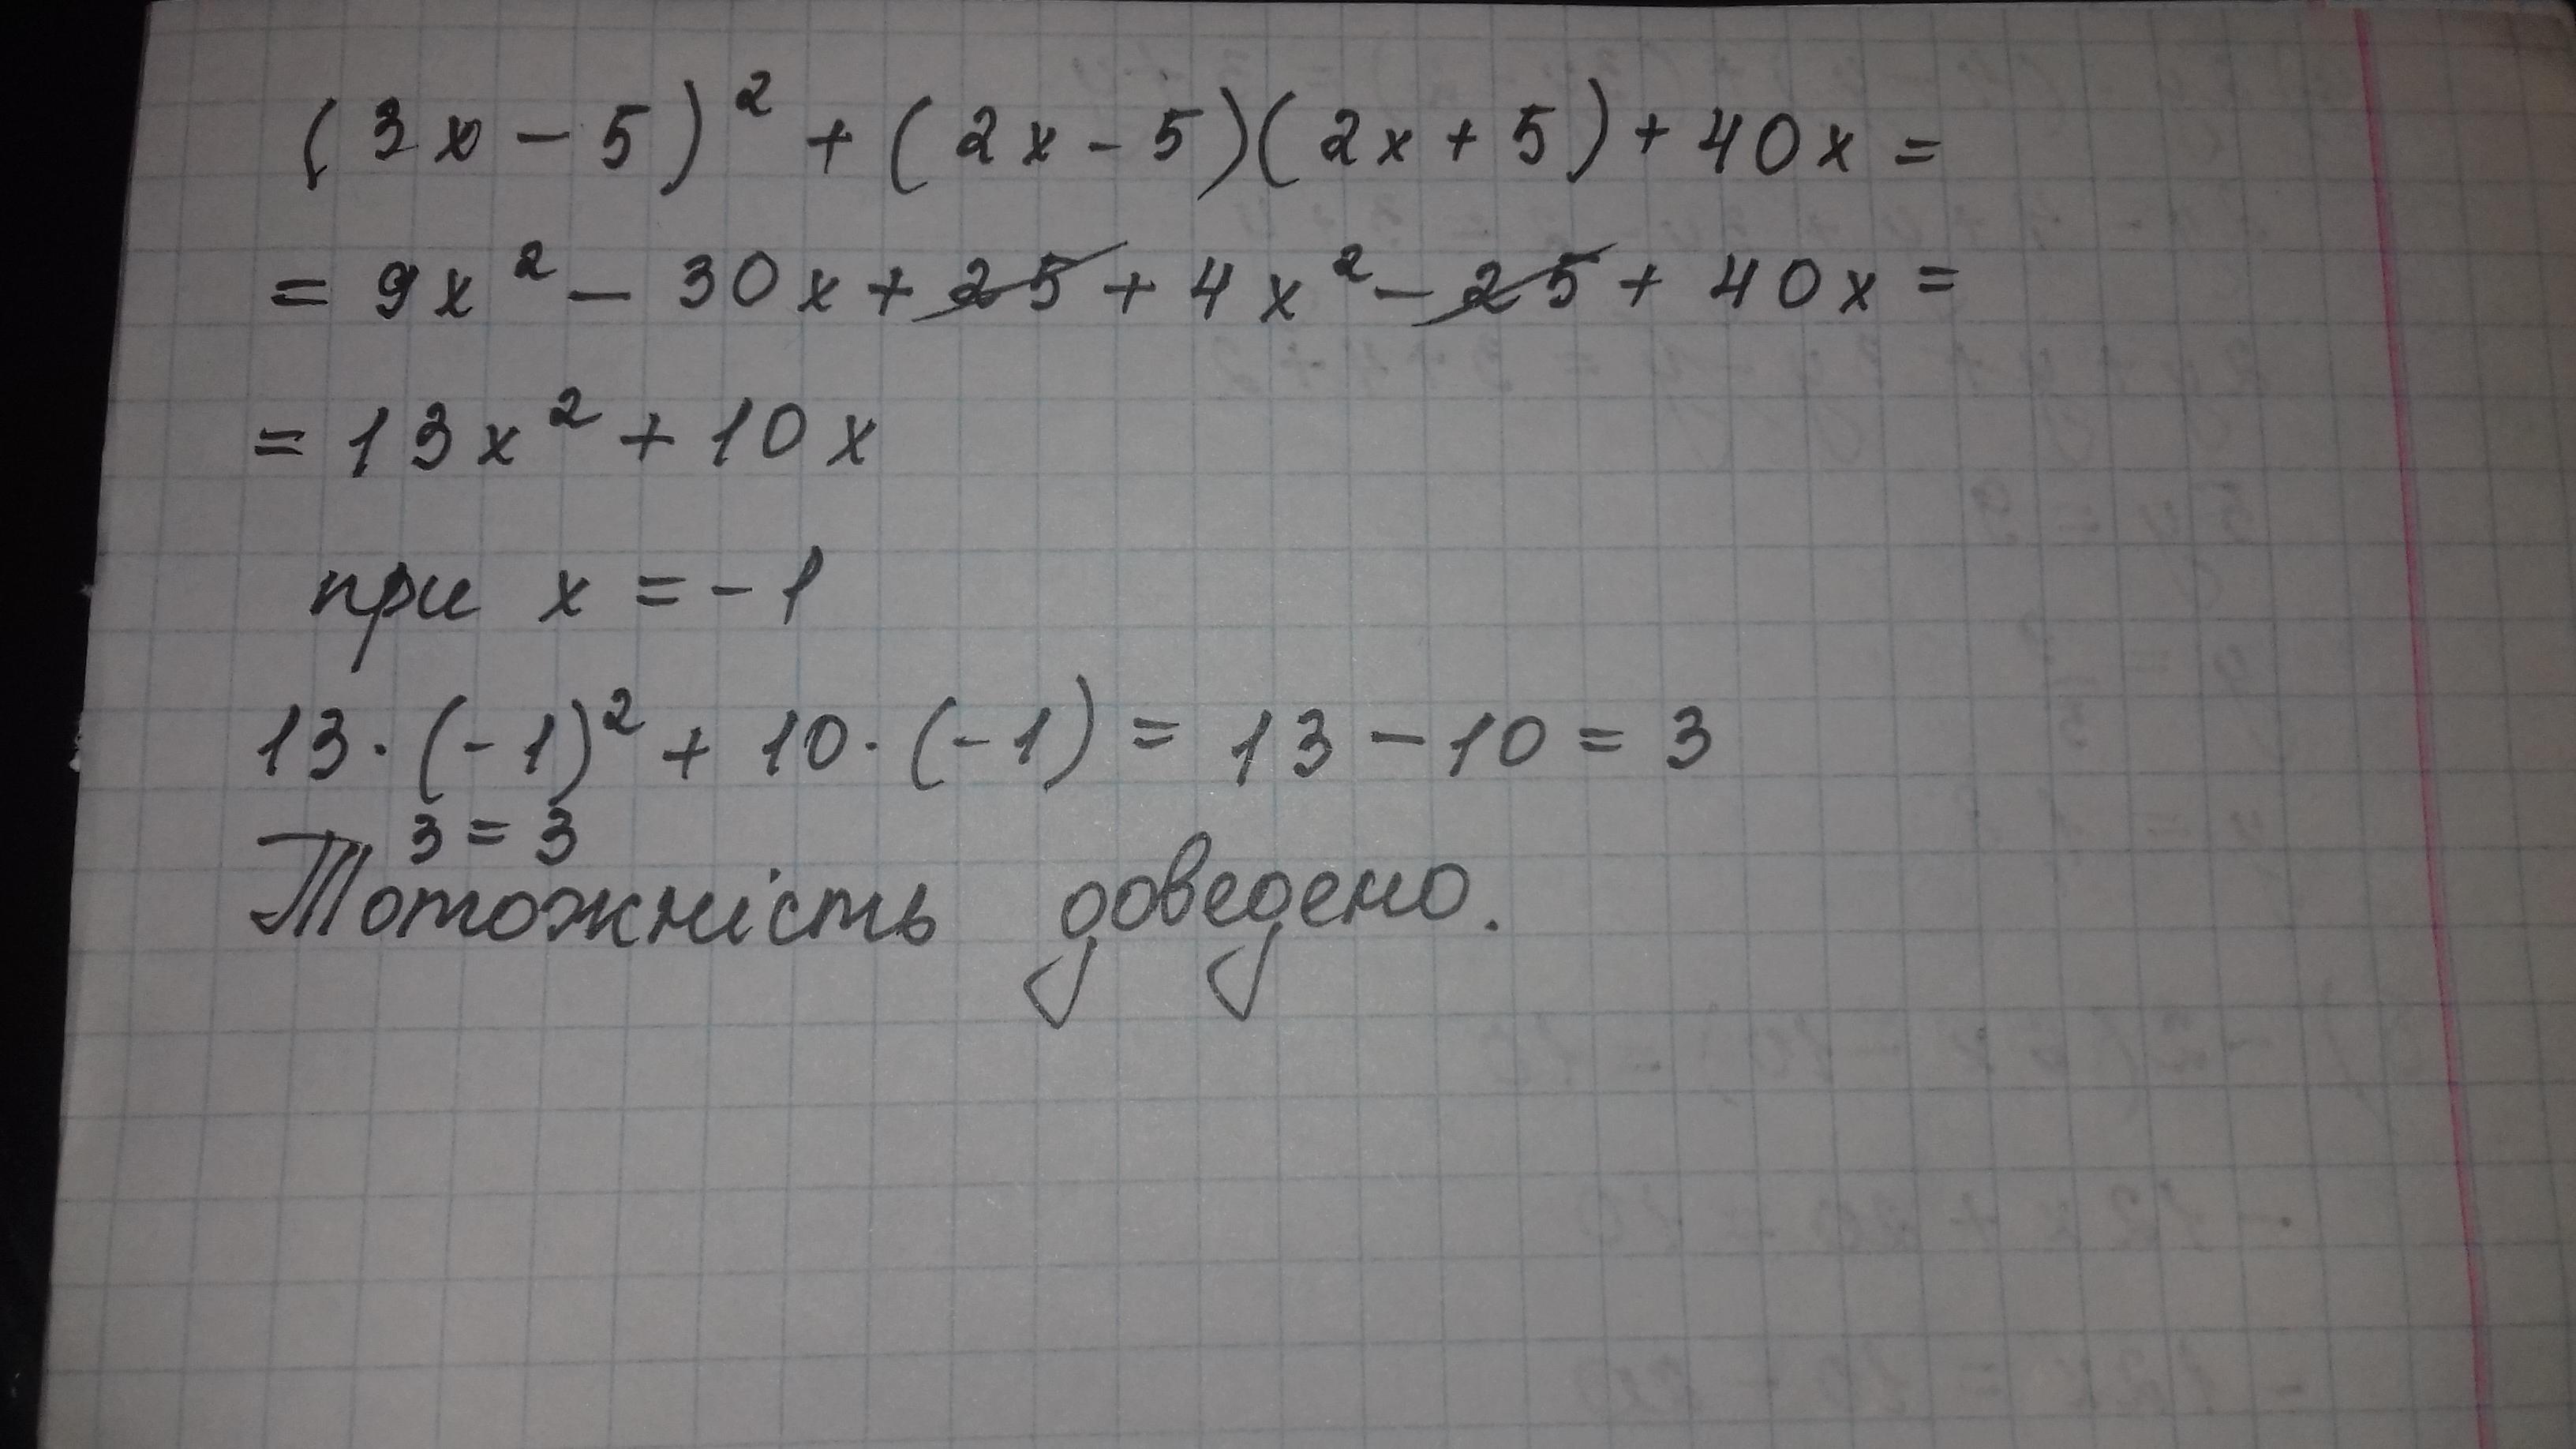 (3x - 5)² + (2x - 5)(2x + 5) + 40x =
= 9x² - 30x + 25 + 4x² - 25 + 40x =
= 13x² + 10x
при x = -1
13 · (-1)² + 10 · (-1) = 13 - 10 = 3
3 = 3
Тотожність доведено.